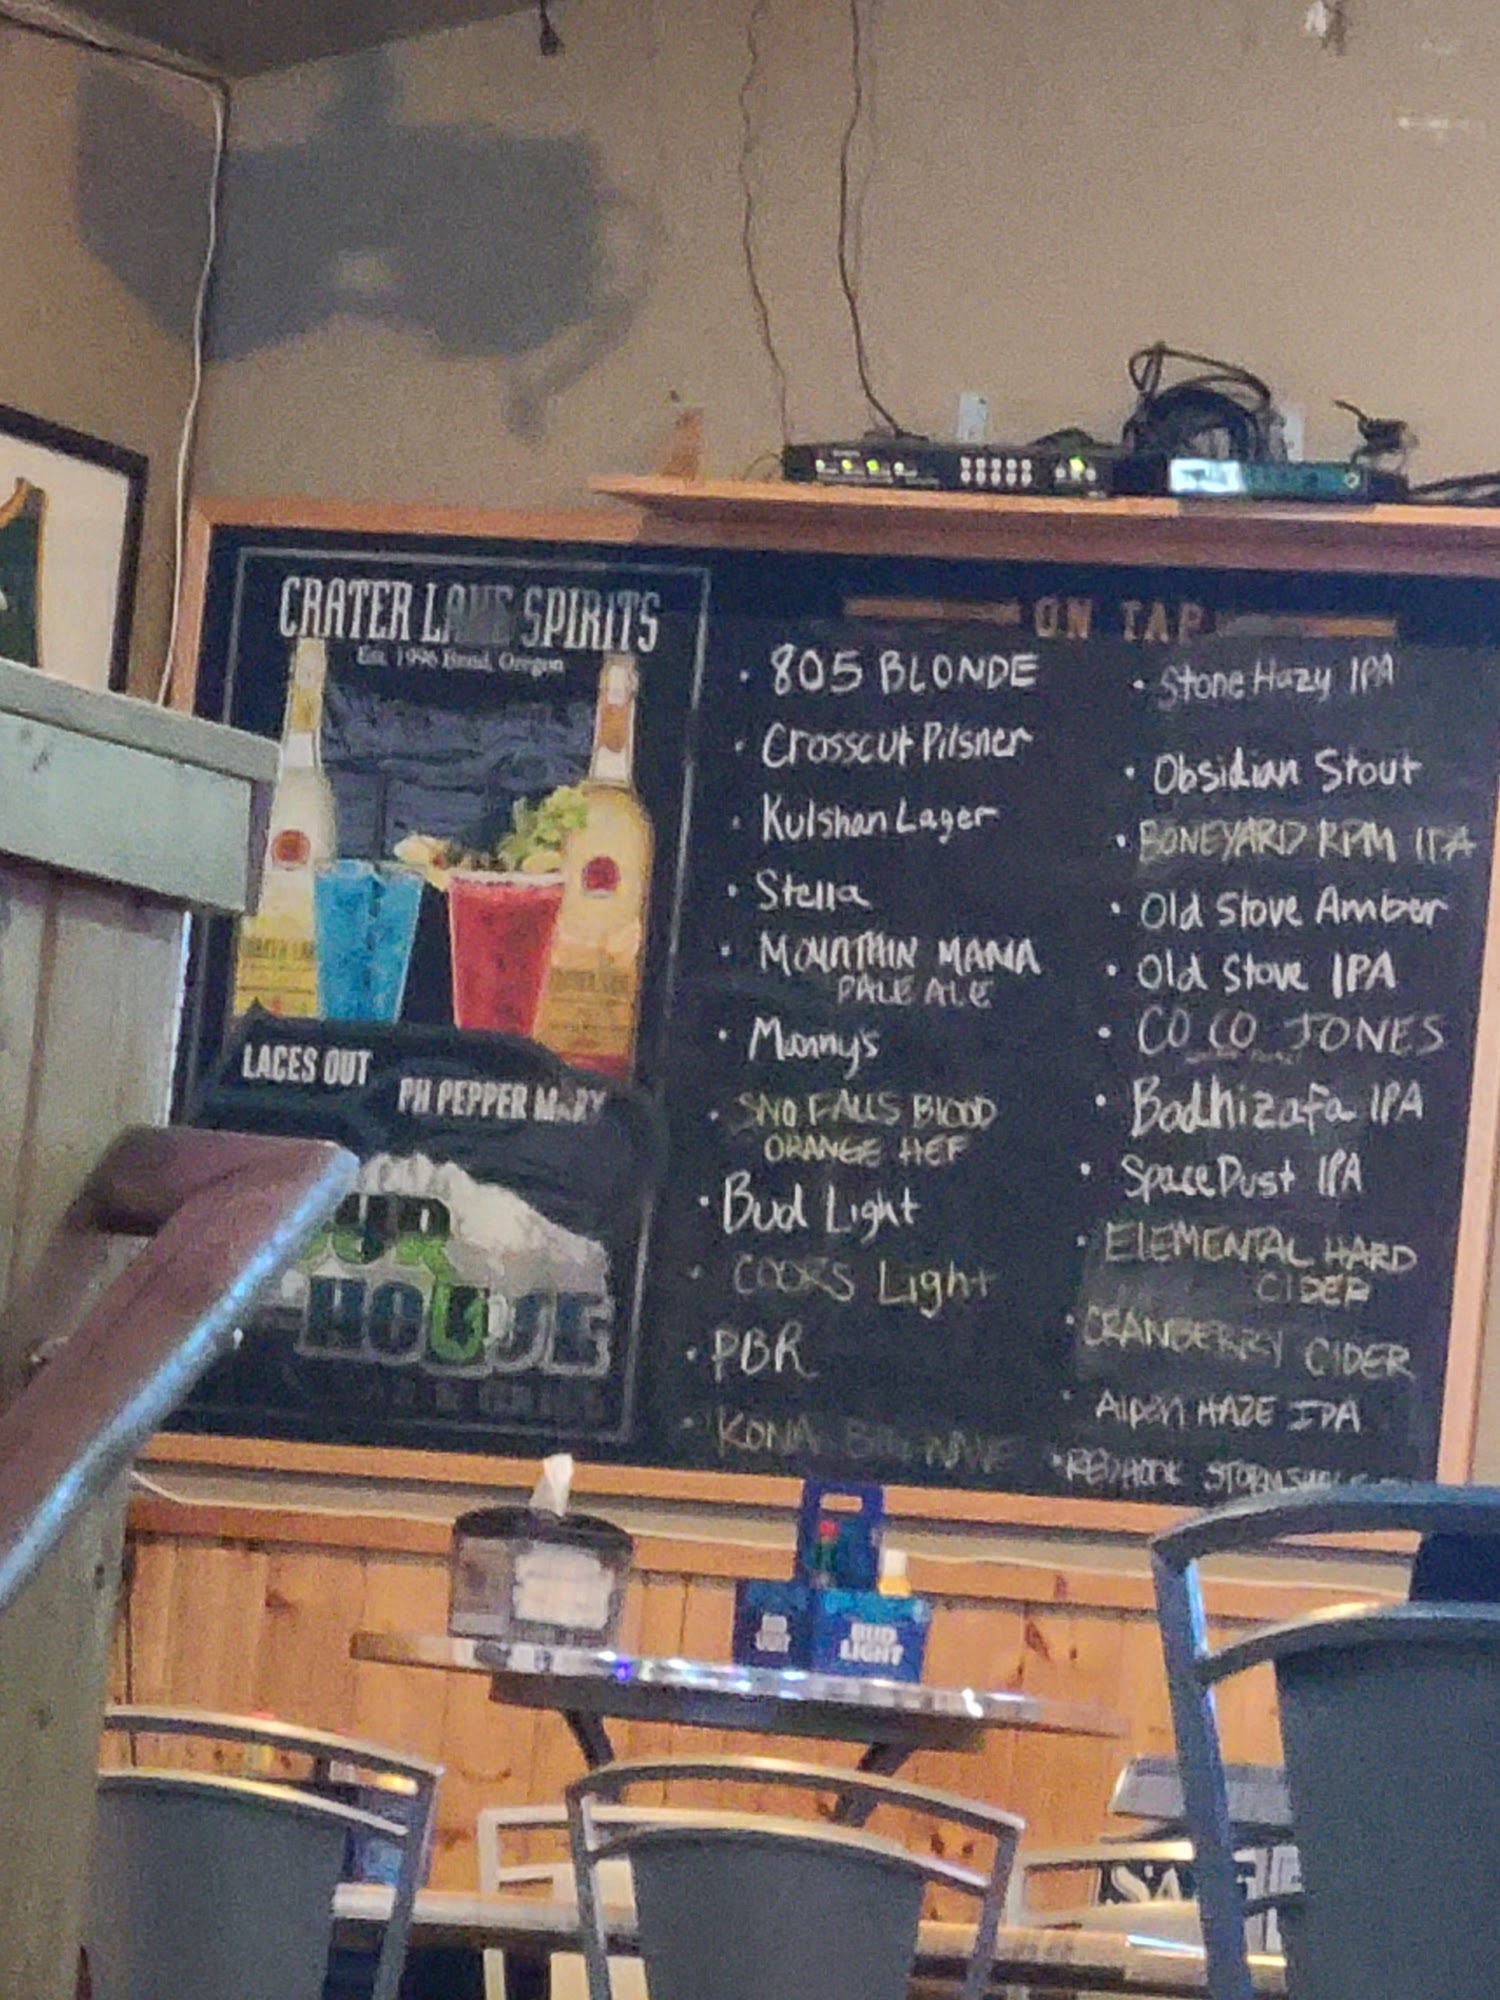 CRATER LAKE SPIRITS
Est. 1996 Bend, Oregon
LACES OUT
PH PEPPER MARY
HOUSE
ON TAP
• 805 BLONDE
• Crosscut Pilsner
• Kulshan Lager
• Stella
• MOUNTAIN MAMA
PALE ALE
• Manny's
• SNO FALLS BLOOD
ORANGE HEF
• Bud Light
• COORS Light
• PBR
• KONA
• Stone Hazy IPA
• Obsidian Stout
• BONEYARD RPM IPA
• Old Stove Amber
• Old Stove IPA
• CO CO JONES
• Bodhizafa IPA
• Space Dust IPA
• ELEMENTAL HARD
CIDER
• CRANBERRY CIDER
• Alpen HAZE IPA
• REDHOOK
BUD
LIGHT